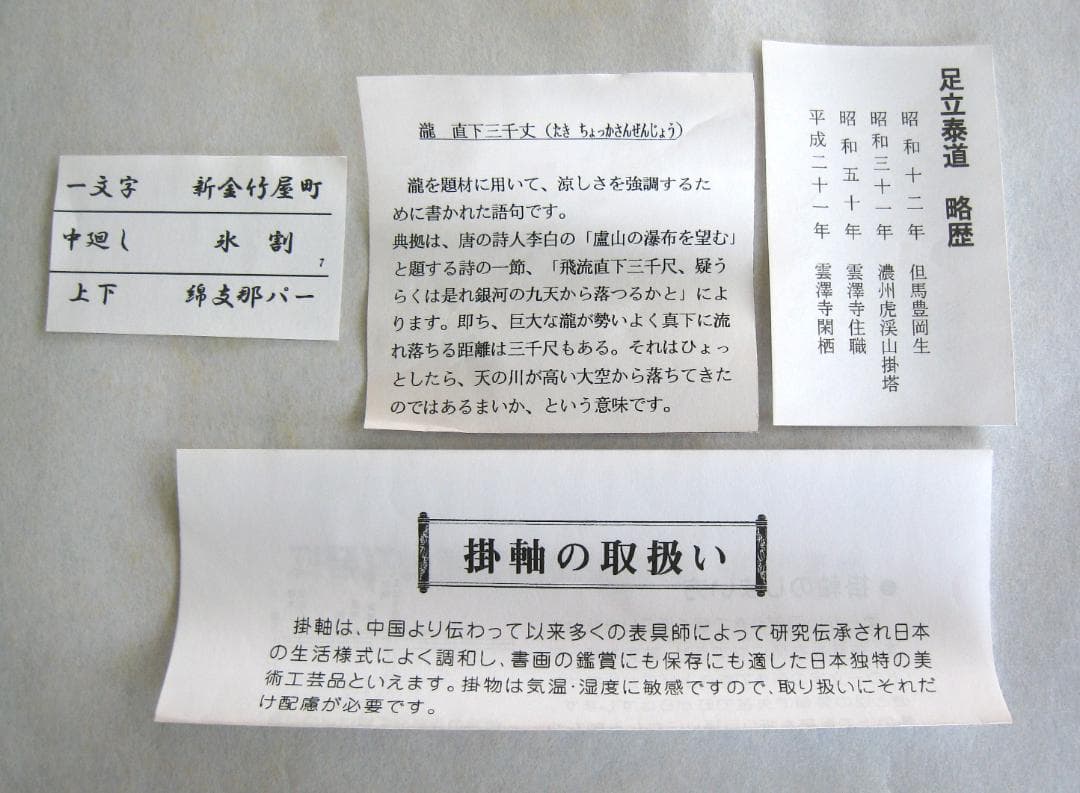 一文字 新金竹屋町
中廻し 氷割
7
上下 綿支那パー
瀧 直下三千丈(たき ちょっかさんぜんじょう)
瀧を題材に用いて、涼しさを強調するた
めに書かれた語句です。
典拠は、唐の詩人李白の「盧山の瀑布を望む」
と題する詩の一節、「飛流直下三千尺、疑う
らくは是れ銀河の九天から落つるかと」によ
ります。即ち、巨大な瀧が勢いよく真下に流
れ落ちる距離は三千尺もある。それはひょっ
としたら、天の川が高い大空から落ちてきた
のではあるまいか、という意味です。
足立泰道 略歴
昭和十二年 但馬豊岡生
昭和三十一年 濃州虎渓山掛塔
昭和五十年 雲澤寺住職
平成二十一年 雲澤寺閑栖
掛軸の取扱い
掛軸は、中国より伝わって以来多くの表具師によって研究伝承され日本
の生活様式によく調和し、書画の鑑賞にも保存にも適した日本独特の美
術工芸品といえます。掛物は気温・湿度に敏感ですので、取り扱いにそれだ
け配慮が必要です。